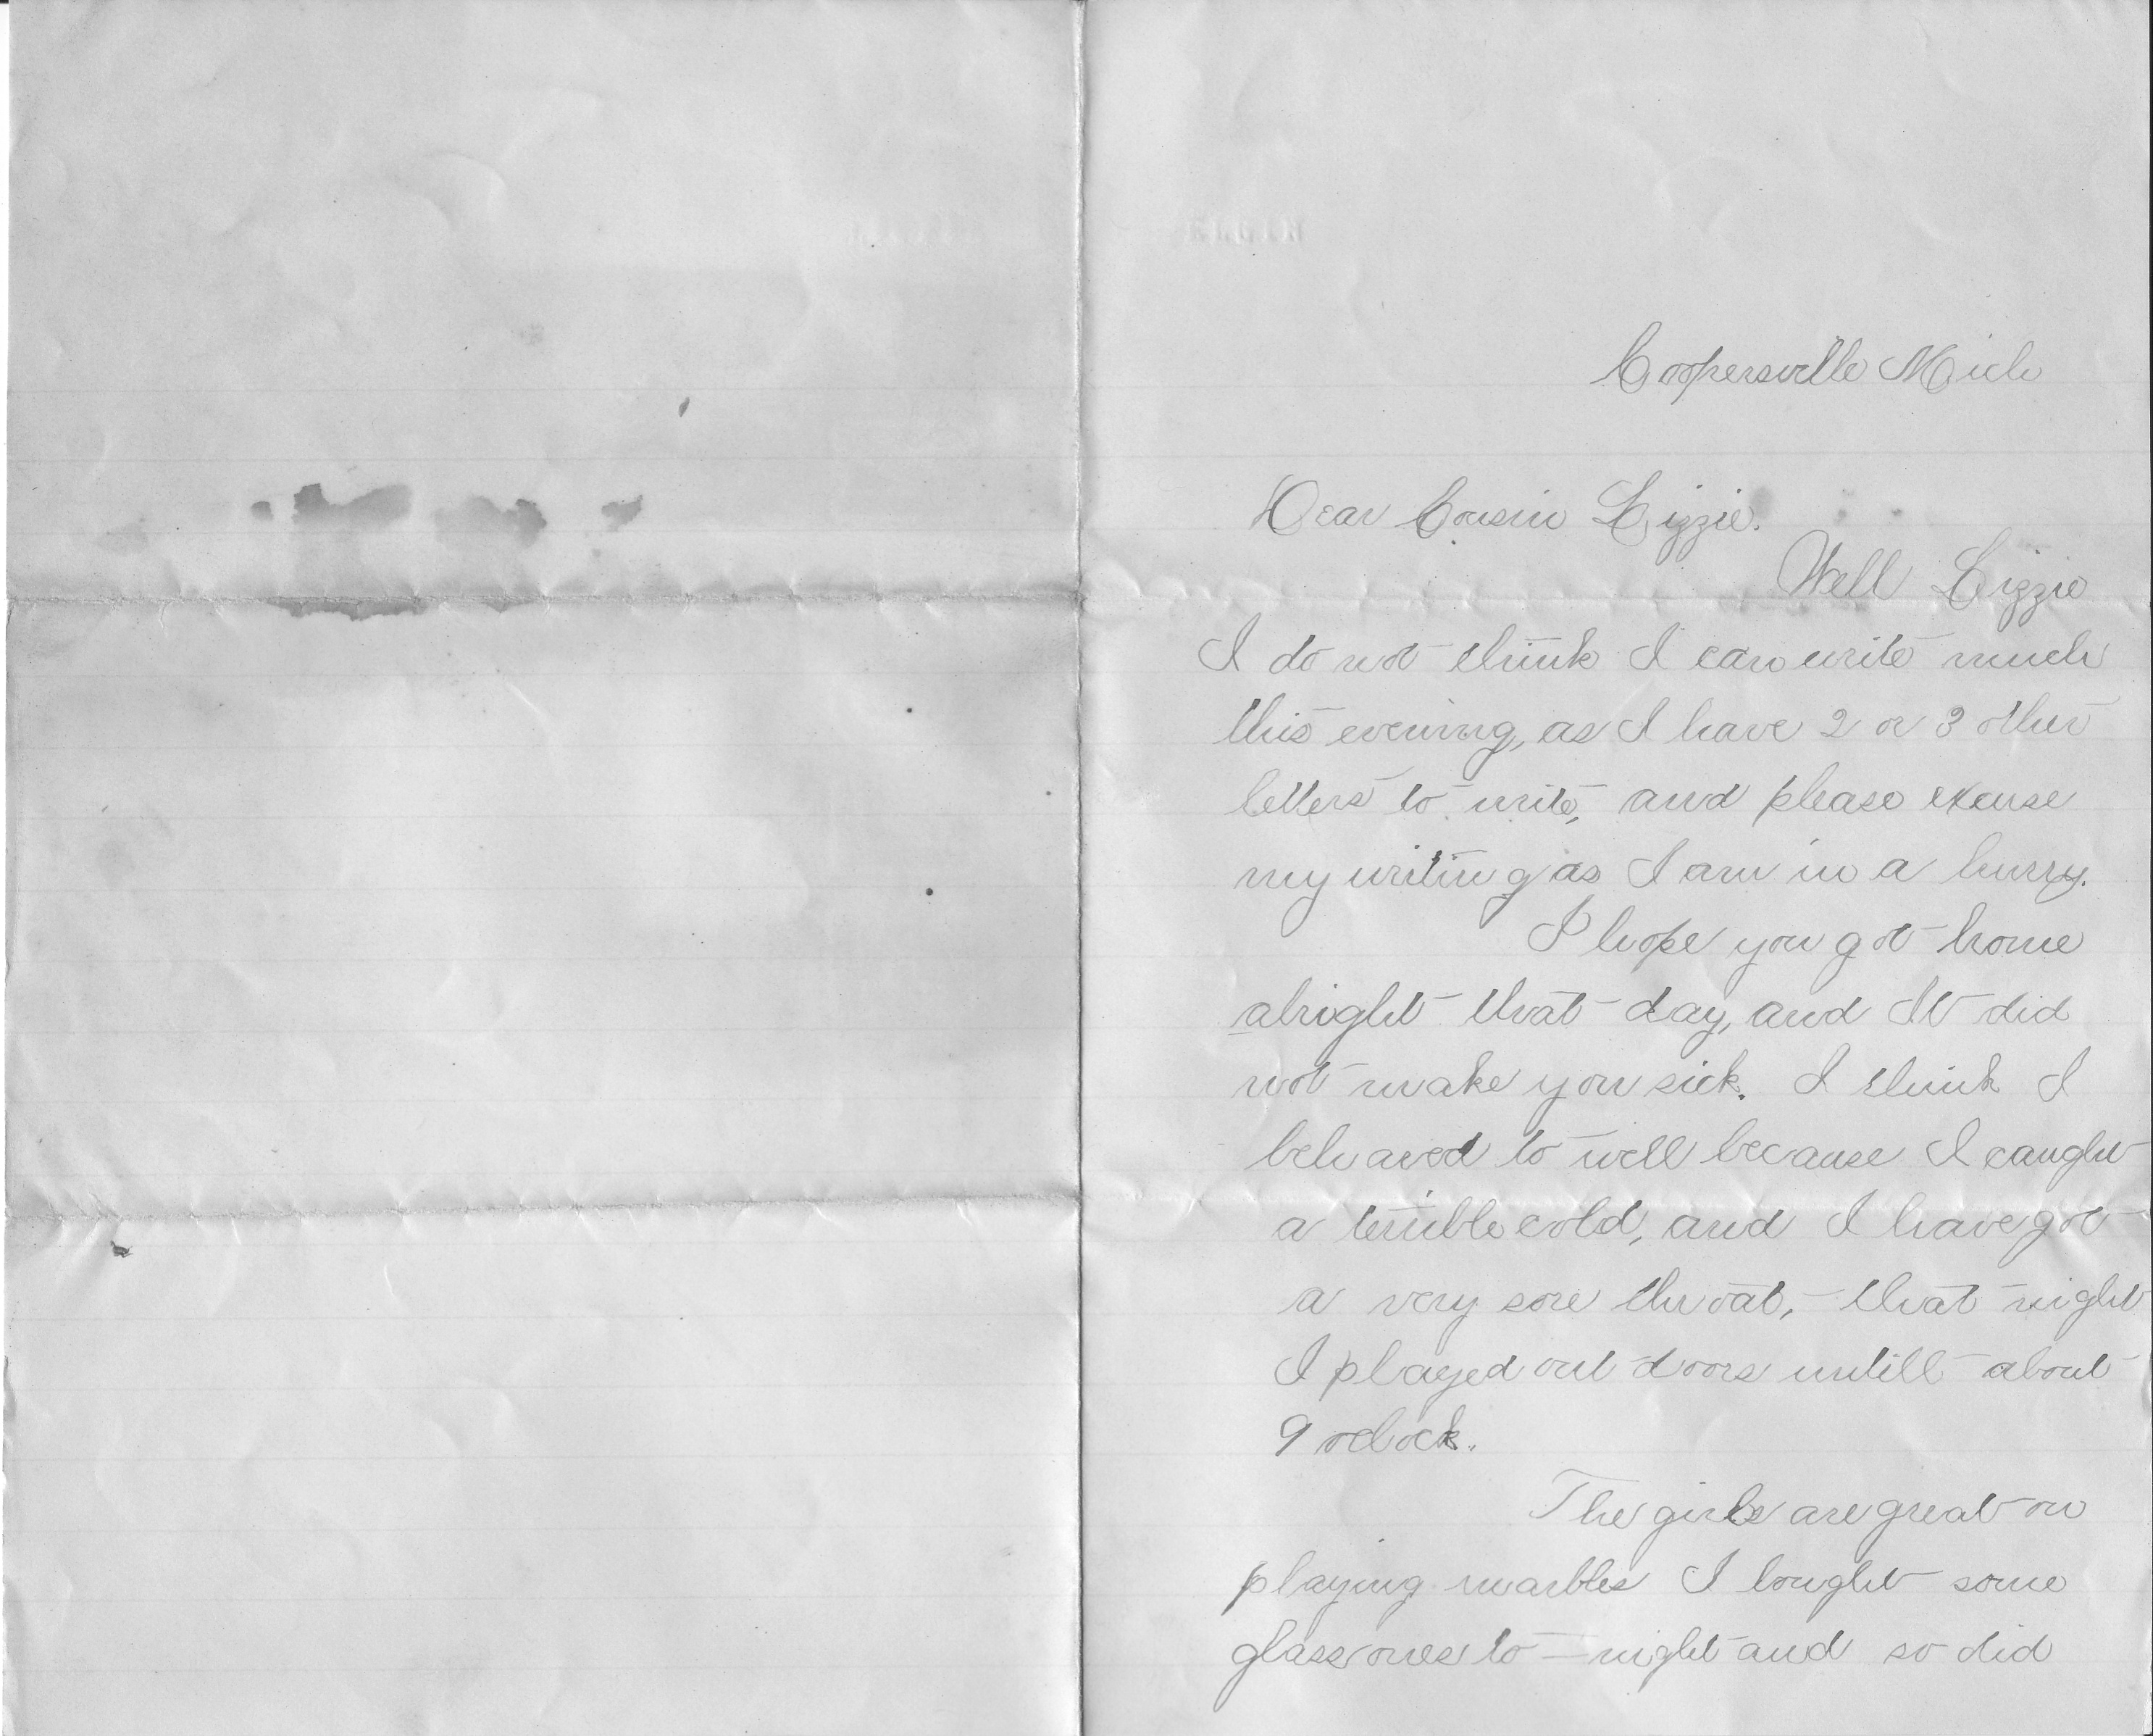 Coopersville Mich
Dear Cousin Lizzie.
Well Lizzie
I do not think I can write much
this evening, as I have 2 or 3 other
letters to write, and please excuse
my writing as I am in a hurry.
I hope you got home
alright that day, and It did
not make you sick. I think I
behaved to well because I caught
a terrible cold, and I have got
a very sore throat, that night
I played out doors untill about
9 oclock.
The girls are great on
playing marbles I bought some
glass ones to-night and so did